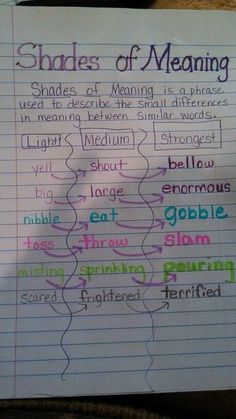 Shades of Meaning
Shades of Meaning is a phrase
used to describe the small differences
in meaning between similar words.
Light Medium Strongest
yell shout bellow
big large enormous
nibble eat gobble
toss throw slam
misting sprinkling pouring
scared frightened terrified